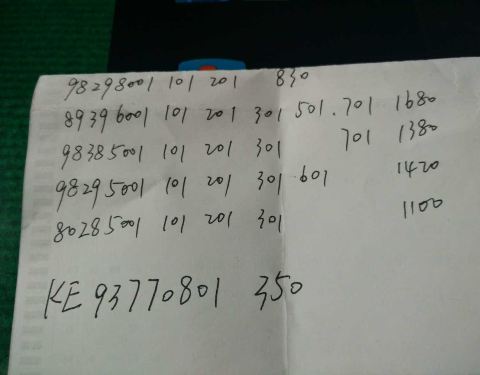 98298001 101 201 830
89396001 101 201 301 501.701 1680
98385001 101 201 301 701 1380
98295001 101 201 301 601 1420
80285001 101 201 301 1100
KE93770801 350